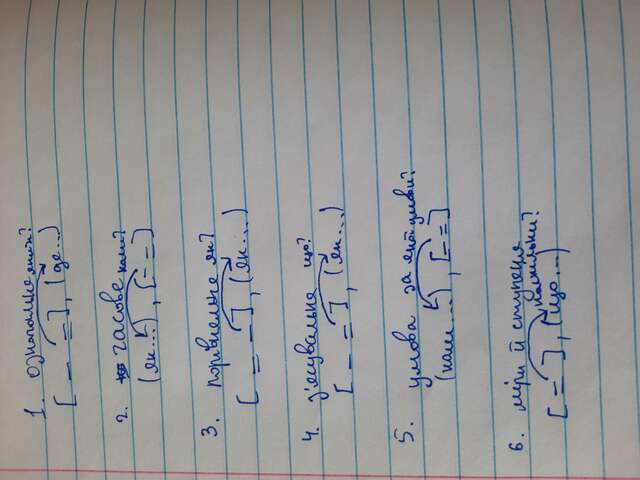 1. означальне який?
[— =], (де...)
2. часове коли?
(як...), [— =]
3. порівняльне як?
[= —], (як...)
4. з'ясувальне що?
[— =], (як...)
5. умова за якої умови?
(коли...), [— =]
6. міри й ступеня наскільки?
[— =], (що...)